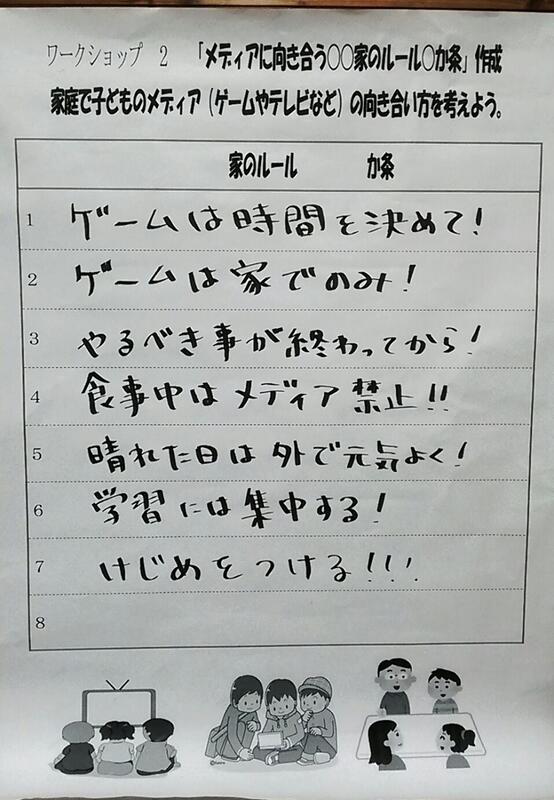 ワークショップ 2 「メディアに向き合う〇〇家のルール〇か条」作成
家庭で子どものメディア(ゲームやテレビなど)の向き合い方を考えよう。
家のルール か条
1 ゲームは時間を決めて!
2 ゲームは家でのみ!
3 やるべき事が終わってから!
4 食事中はメディア禁止!!
5 晴れた日は外で元気よく!
6 学習には集中する!
7 けじめをつける!!!
8